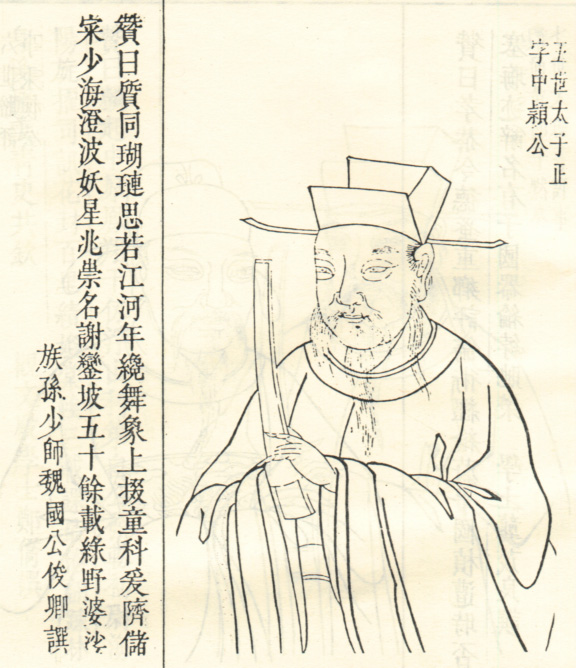 五世太子正
字中顈公
贊曰質同瑚璉思若江河年纔舞象上掇童科爰隮儲
寀少海澄波妖星兆祟名謝鑾坡五十餘載綠野婆沙
族孫少師魏國公俊卿譔